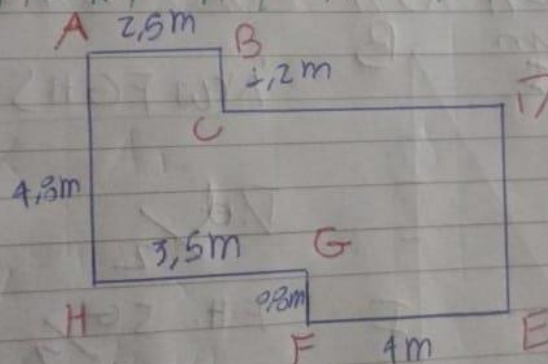 A 2,5m B
1,2m
D
C
4,8m
3,5m G
H 0,8m
F 4m E